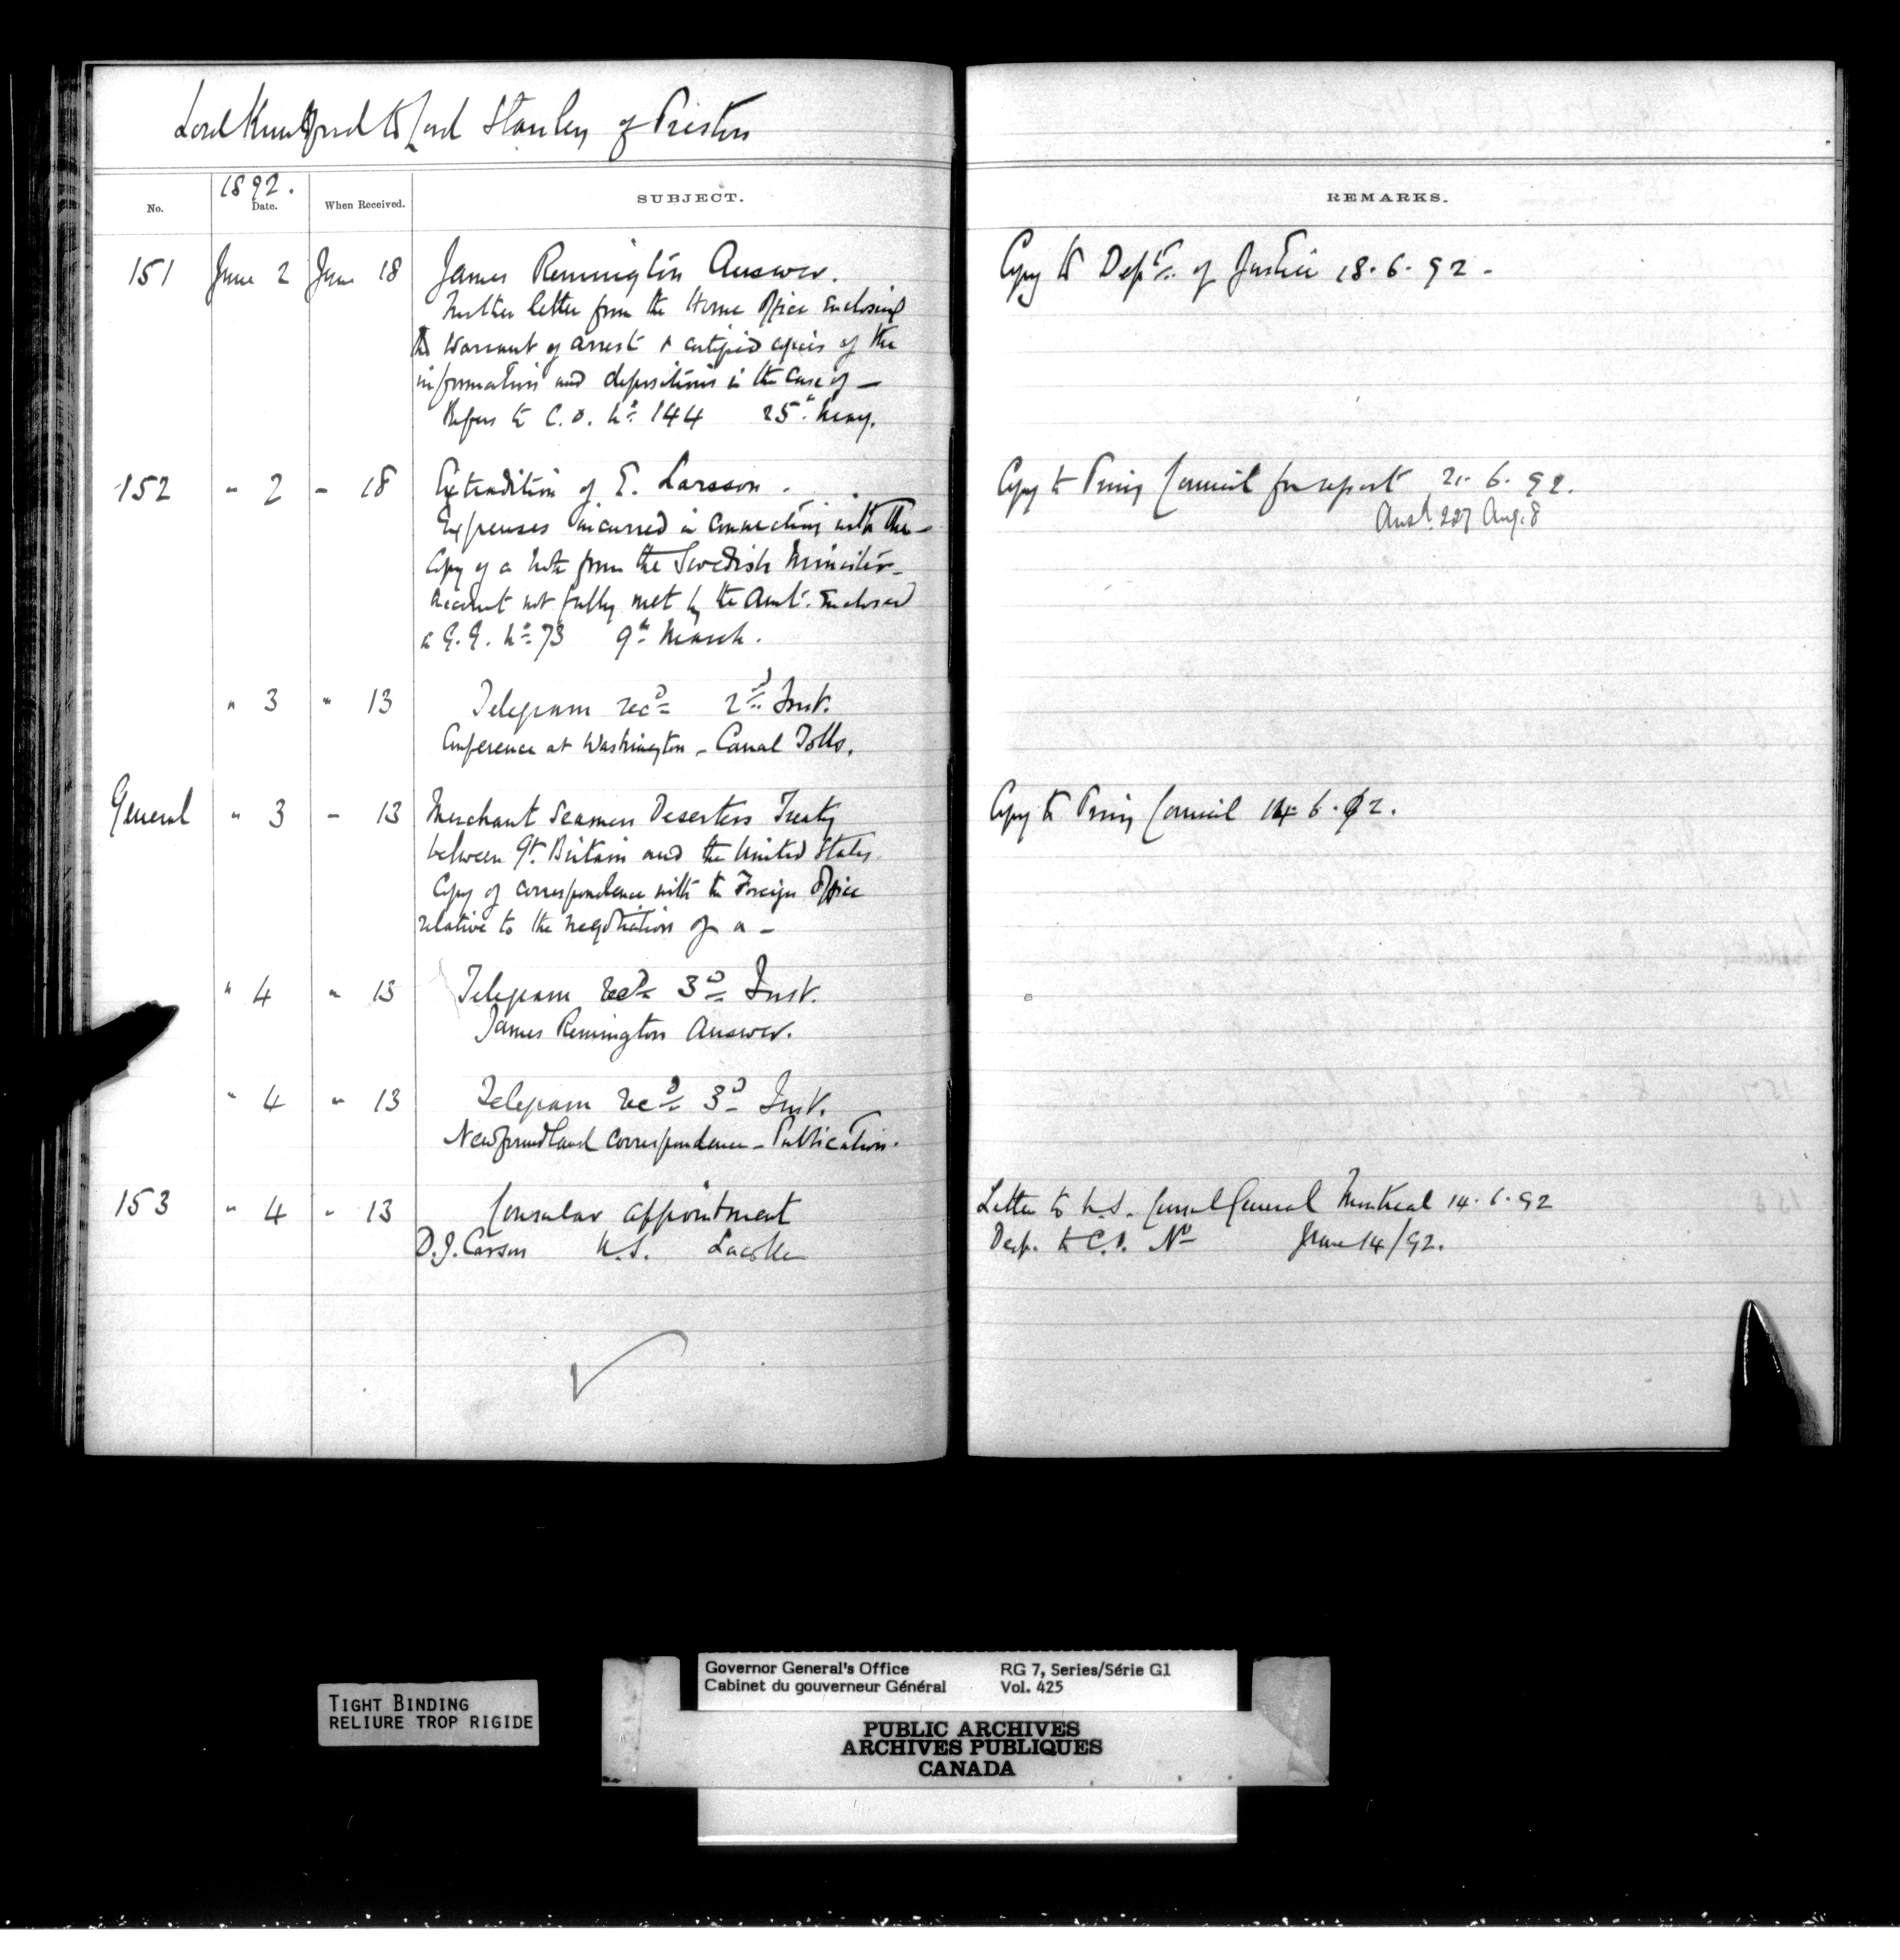 Lord Knutsford to Lord Stanley of Preston
1892.
No. Date. When Received. SUBJECT. REMARKS.
151 June 2 June 18 James Remington Answer. Copy to Dept. of Justice 18.6.92-
Further letter from the Home Office enclosing
the Warrant of arrest & certified copies of the
information and depositions in the case of —
Refers to C.O. No 144 25th May.
152 " 2 - 18 Extradition of E. Larsson. Copy to Privy Council for report 21.6.92.
Expenses incurred in connection with the - Ansd. 227 Aug. 8
Copy of a note from the Swedish Minister-
Account not fully met by the amt. enclosed
in G.G. No 73 9th March.
" 3 " 13 Telegram recd 2nd Inst.
Conference at Washington - Canal Tolls.
General " 3 - 13 Merchant Seamen Deserters Treaty Copy to Privy Council 14.6.92.
between Gt. Britain and the United States.
Copy of correspondence with the Foreign Office
relative to the negotiation of a -
" 4 " 13 Telegram recd 3d Inst.
James Remington Answer.
" 4 " 13 Telegram recd 3d Inst.
Newfoundland Correspondence - Publication.
153 " 4 " 13 Consular appointment Letter to U.S. Consul General Montreal 14.6.92
D.J. Carson U.S. Lacolle Desp. to C.O. No June 14/92.
TIGHT BINDING
RELIURE TROP RIGIDE
Governor General's Office RG 7, Series/Série G1
Cabinet du gouverneur Général Vol. 425
PUBLIC ARCHIVES
ARCHIVES PUBLIQUES
CANADA